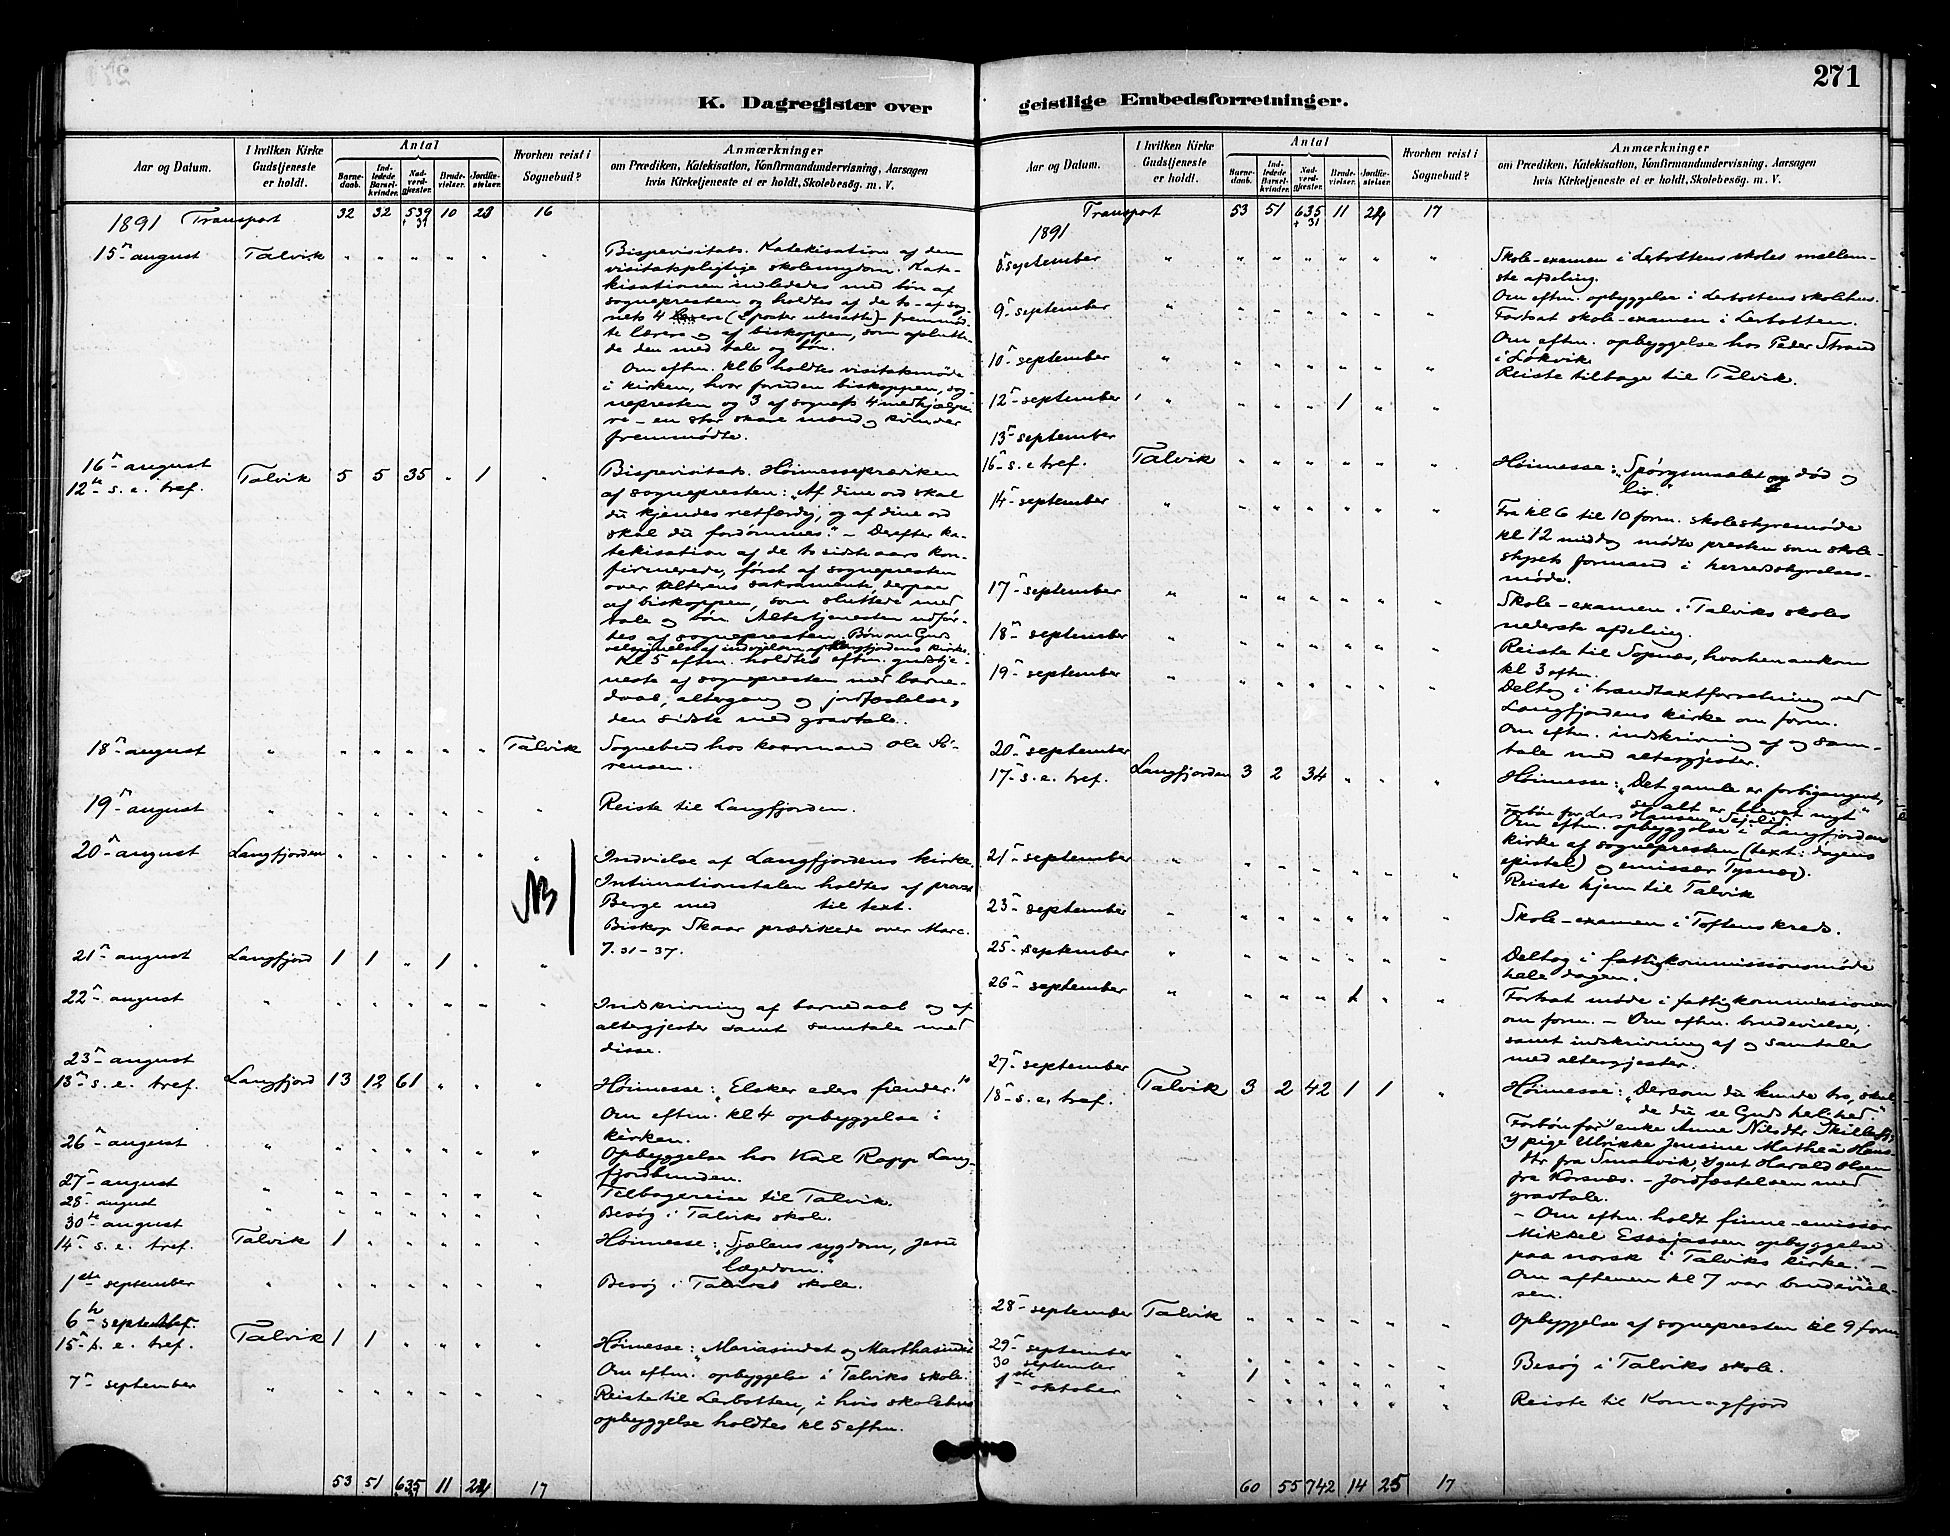 271
K. Dagregister over geistlige Embedsforretninger.
Aar og Datum.
I hvilken Kirke Gudstjeneste er holdt.
Antal
Barnedaab.
Indledede Barselkvinder.
Nadverdgjester.
Brudevielser.
Jordfæstelser.
Hvorhen reist i Sognebud?
Anmærkninger
om Prædiken, Katekisation, Konfirmandundervisning, Aarsagen
hvis Kirketjeneste ei er holdt, Skolebesøg. m. V.
1891 Transport 32 32 539 10 23 16
+ 31
15n august Talvik " " " " " " Bispevisitats. Katekisation af den
visitatspligtige skoleungdom. Kate-
kisationen indlededes med bøn af
sognepresten og holdtes af de to - af sog-
nets 4 lærere (2 poster ubesatte) - fremmød-
te lærere og af biskoppen, som aflutte-
de den med tale og bøn.
Om eftm. kl 6 holdtes visitatsmøde
i kirken, hvor foruden biskoppen, sog-
nepresten og 3 af sognets 4 medhjælpe-
re - en stor skare mænd og kvinder
fremmødte.
16n august
12te s. e. tref. Talvik 5 5 35 " 1 " Bispevisitats. Høimesseprædiken
af sognepresten: "Af dine ord skal
du kjendes retfærdig, og af dine ord
skal du fordømmes." - Derefter ka-
tekisation af de to sidste aars kon-
firmerede, først af sognepresten
over alterens sakramente, derpaa
af biskoppen, som sluttede med
tale og bøn. Altertjenesten udfør-
tes af sognepresten. Bøn om Guds
velsignelse af indvielsen af Langfjordens kirke.
Kl 5 eftm. holdtes eftm. gudstje-
neste af sognepresten med barne-
daab, altergang og jordfæstelse,
den sidste med gravtale.
18n august " " " " " " Talvik Sognebud hos kaarmand Ole Sø-
rensen.
19n august " " " " " " " Reiste til Langfjorden.
20n august Langfjorden " " " " " " Indvielse af Langfjordens kirke.
NB Intimationstalen holdtes af provst
Berge med til text.
Biskop Skaar prædikede over Marc.
7. 31 - 37.
21n august Langfjord 1 1 " 1 " "
22n august " " " " " " " Indskrivning af barnedaab og af
altergjester samt samtale med
disse.
23n august
13n s. e. tref. Langfjord 13 12 61 " " " Høimesse: "Elsker eders fiender."
Om eftm. kl 4 opbyggelse i
kirken.
26n august " " " " " " " Opbyggelse hos Karl Rapp Lang-
fjordbunden.
27n august " " " " " " " Tilbagereise til Talvik.
28n august " " " " " " " Besøg i Talviks skole.
30te august
14n s. e. tref. Talvik 1 " " " " " Høimesse: "Sjælens sygdom, Jesu
lægedom."
1ste september " " " " " " " Besøg i Talviks skole.
6te septembr.
15n s. e. tref. Talvik 1 1 " " " " Høimesse: "Mariasindet og Marthasindet"
Om eftm. opbyggelse i Talviks skole.
7n september " " " " " " " Reiste til Lerbotten, i hvis skolehus
opbyggelse holdtes kl 5 eftm.
53 51 635 11 24 17
Aar og Datum.
I hvilken Kirke Gudstjeneste er holdt.
Antal
Barnedaab.
Indledede Barselkvinder.
Nadverdgjester.
Brudevielser.
Jordfæstelser.
Hvorhen reist i Sognebud?
Anmærkninger
om Prædiken, Katekisation, Konfirmandundervisning, Aarsagen
hvis Kirketjeneste ei er holdt, Skolebesøg. m. V.
Transport 53 51 635 11 24 17
+ 31
1891
8n september " " " " " " " Skole-examen i Lerbottens skoles mellem-
ste afdeling.
Om eftm. opbyggelse i Lerbottens skolehus.
9n september " " " " " " " Fortsat skole-examen i Lerbotten.
Om eftm. opbyggelse hos Peder Strand
i Løkvik
10n september " " " " " " " Reiste tilbage til Talvik.
12n september " " " " 1 " "
13n september
16n s. e tref. Talvik " " " " " " Høimesse: "Spørgsmaalet om død og
liv."
14n september " " " " " " " Fra kl 6 til 10 form. skolestyremøde
kl 12 middag mødte presten som skole-
styrets formand i herredsstyrelses-
møde.
17n september " " " " " " " Skole-examen i Talviks skoles
nederste afdeling.
18n september " " " " " " " Reiste til Sopnæs, hvorhen ankom
kl 3 eftm.
19n september " " " " " " " Deltog i brandtaxtforretning ved
Langfjordens kirke om form.
Om eftm. indskrivning af og sam-
tale med altergjester.
20n september
17n s. e. tref. Langfjorden 3 2 34 " " " Høimesse: "Det gamle er forbigangent,
se alt er blevet nyt"
Forbøn for Lars Hansen
Om eftm. opbyggelse i Langfjorden
kirke af sognepresten (text: dagens
epistel) og emissær Tysnæs.
21n september " " " " " " " Reiste hjem til Talvik
23n september " " " " " " " Skole-examen i Toftens kreds.
25n september " " " " " " " Deltog i fattigkommissionsmøde
hele dagen.
26n september " " " " 1 " " Fortsat møde i fattigkommissionen
om form. - Om eftm. brudevielse,
samt indskrivning af og samtaler
med altergjester.
27n september
18n s. e. tref. Talvik 3 2 42 1 1 " Høimesse: "Dersom du kunde tro, skul-
de du se Guds herlighed."
Forbøn for enke Anne Nilsdtr
pige Ulrikke Jensine Mathea Hans-
dtr fra Smaavik, gut Harald Olsen
fra Korsnæs. - Jordfæstelsen med
gravtale.
- Om eftm. holdt finne-emissær
Mikkel Essajassen opbyggelse
paa norsk i Talviks kirke. -
Om aftenen kl 7 var brudeviel-
sen.
28n september Talvik " " " " " " Opbyggelse af sognepresten kl 9 form
29n september " " " " " " " Besøg i Talviks skole.
30 september " 1 " " " " "
1ste oktober " " " " " " " Reiste til Komagfjord
60 55 742 14 25 17